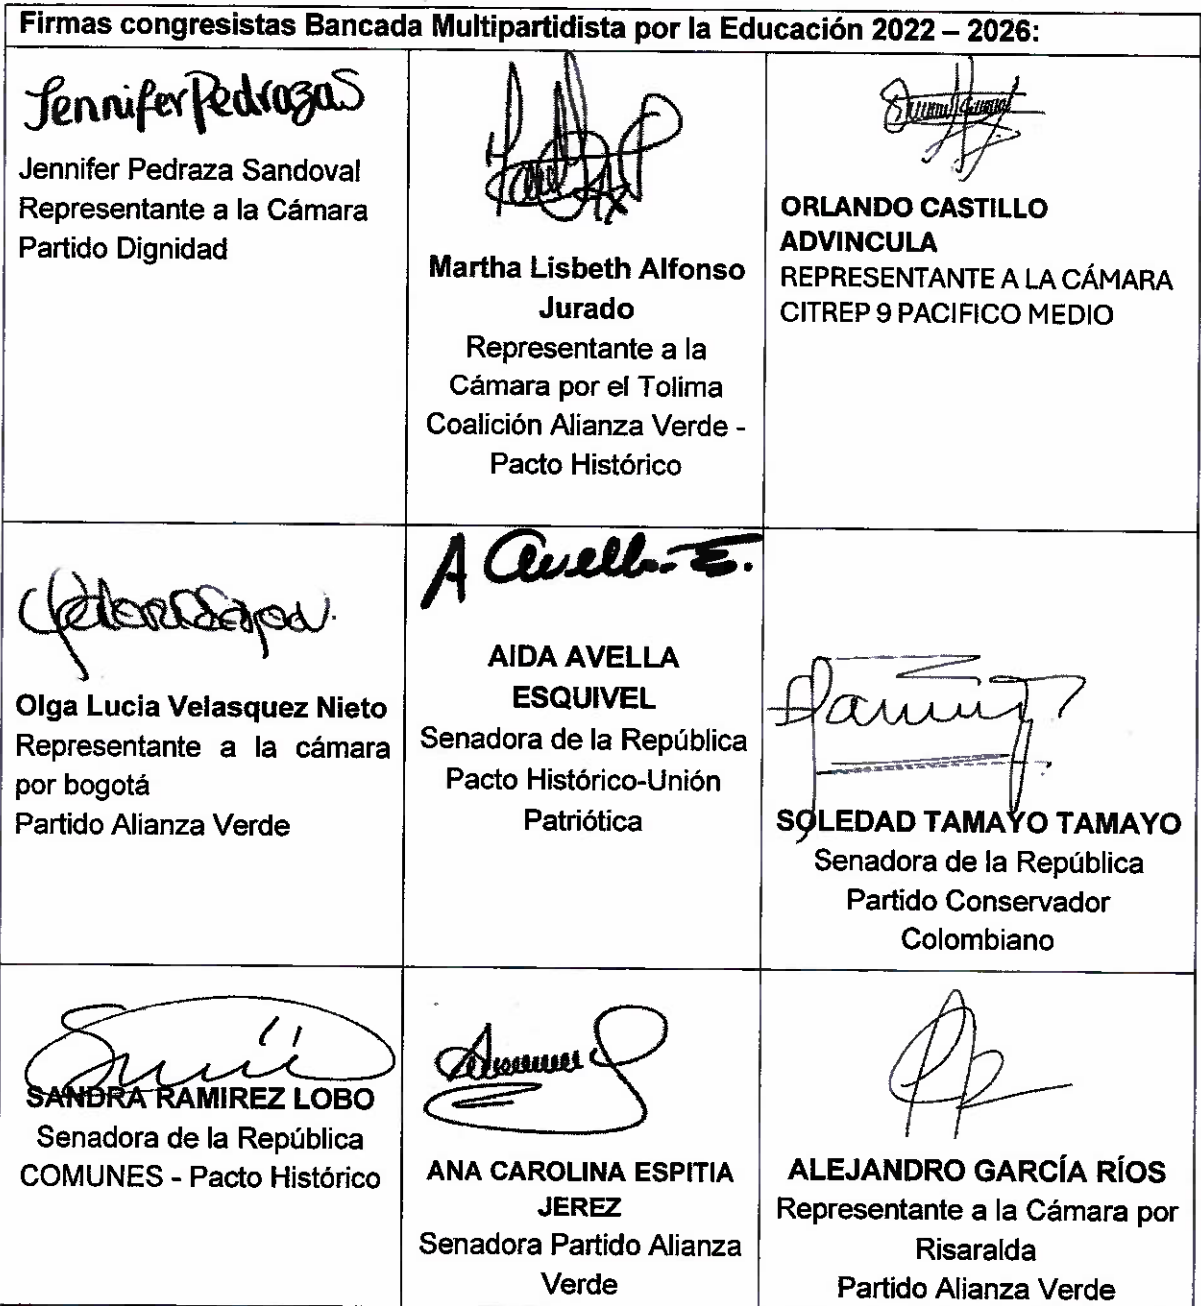 Firmas congresistas Bancada Multipartidista por la Educación 2022 – 2026:
Jennifer PedrazaS
Jennifer Pedraza Sandoval
Representante a la Cámara
Partido Dignidad
Martha Lisbeth Alfonso
Jurado
Representante a la
Cámara por el Tolima
Coalición Alianza Verde -
Pacto Histórico
ORLANDO CASTILLO
ADVINCULA
REPRESENTANTE A LA CÁMARA
CITREP 9 PACIFICO MEDIO
Olga Lucia Velasquez Nieto
Representante a la cámara
por bogotá
Partido Alianza Verde
A Avella E.
AIDA AVELLA
ESQUIVEL
Senadora de la República
Pacto Histórico-Unión
Patriótica
SOLEDAD TAMAYO TAMAYO
Senadora de la República
Partido Conservador
Colombiano
SANDRA RAMIREZ LOBO
Senadora de la República
COMUNES - Pacto Histórico
ANA CAROLINA ESPITIA
JEREZ
Senadora Partido Alianza
Verde
ALEJANDRO GARCÍA RÍOS
Representante a la Cámara por
Risaralda
Partido Alianza Verde